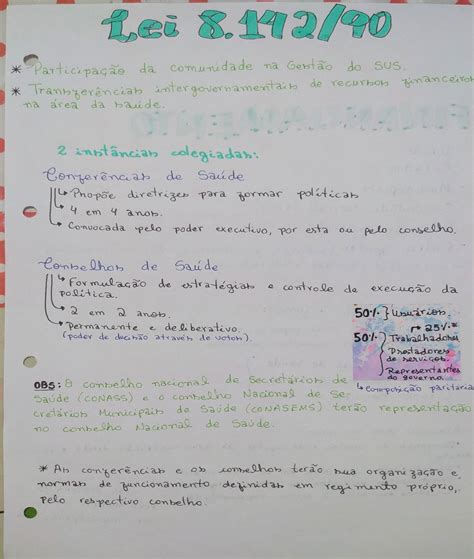 Lei 8.142/90
* Participação da comunidade na Gestão do SUS.
* Transferências intergovernamentais de recursos financeiros
na área da saúde.
2 instâncias colegiadas:
Conferências de Saúde
↳ Propõe diretrizes para formar políticas
↳ 4 em 4 anos.
↳ Convocada pelo poder executivo, por esta ou pelo conselho.
Conselhos de Saúde
↳ Formulação de estratégias e controle de execução da
política.
↳ 2 em 2 anos.
↳ Permanente e deliberativo.
(poder de decisão através de votos).
50% } Usuários
↱ 25%
50% } Trabalhadores
Prestadores
de serviços.
Representantes
do governo.
↳ Composição paritária
OBS: O conselho nacional de Secretários de
Saúde (CONASS) e o conselho Nacional de Se-
cretários Municipais de Saúde (CONASEMS) terão representação
no conselho Nacional de Saúde.
* As conferências e os conselhos terão sua organização e
normas de funcionamento definidas em regimento próprio,
Pelo respectivo conselho.